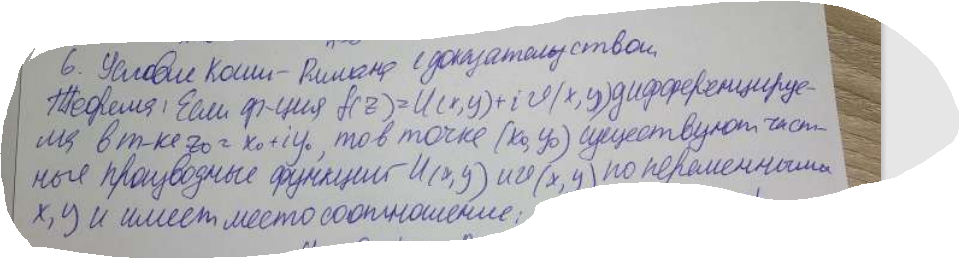 6. Условие Коши-Римана с доказательством
Теорема: Если ф-ция f(z)=U(x,y)+iυ(x,y) дифференцируе-
ма в т-ке z₀=x₀+iy₀, то в точке (x₀,y₀) существуют част-
ные производные функций U(x,y) и υ(x,y) по переменным
x,y и имеет место соотношение: